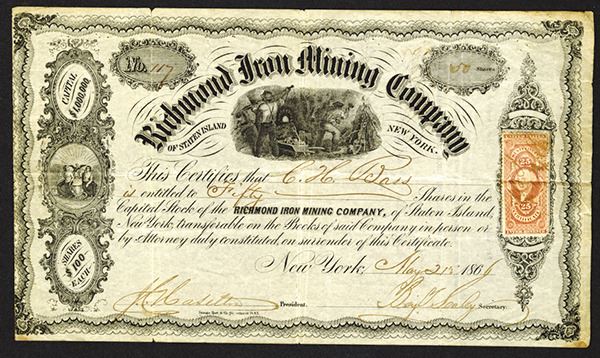 No. 117
50 Shares
Richmond Iron Mining Company
OF STATEN ISLAND NEW YORK.
CAPITAL
$1,000,000.
This Certifies that C. H. Bass
is entitled to Fifty Shares in the
Capital Stock of the RICHMOND IRON MINING COMPANY, of Staten Island,
New York, transferable on the Books of said Company in person or
by Attorney duly constituted, on surrender of this Certificate.
SHARES
$100
EACH
25 25
New York May 21st 1866
President.
Secretary.